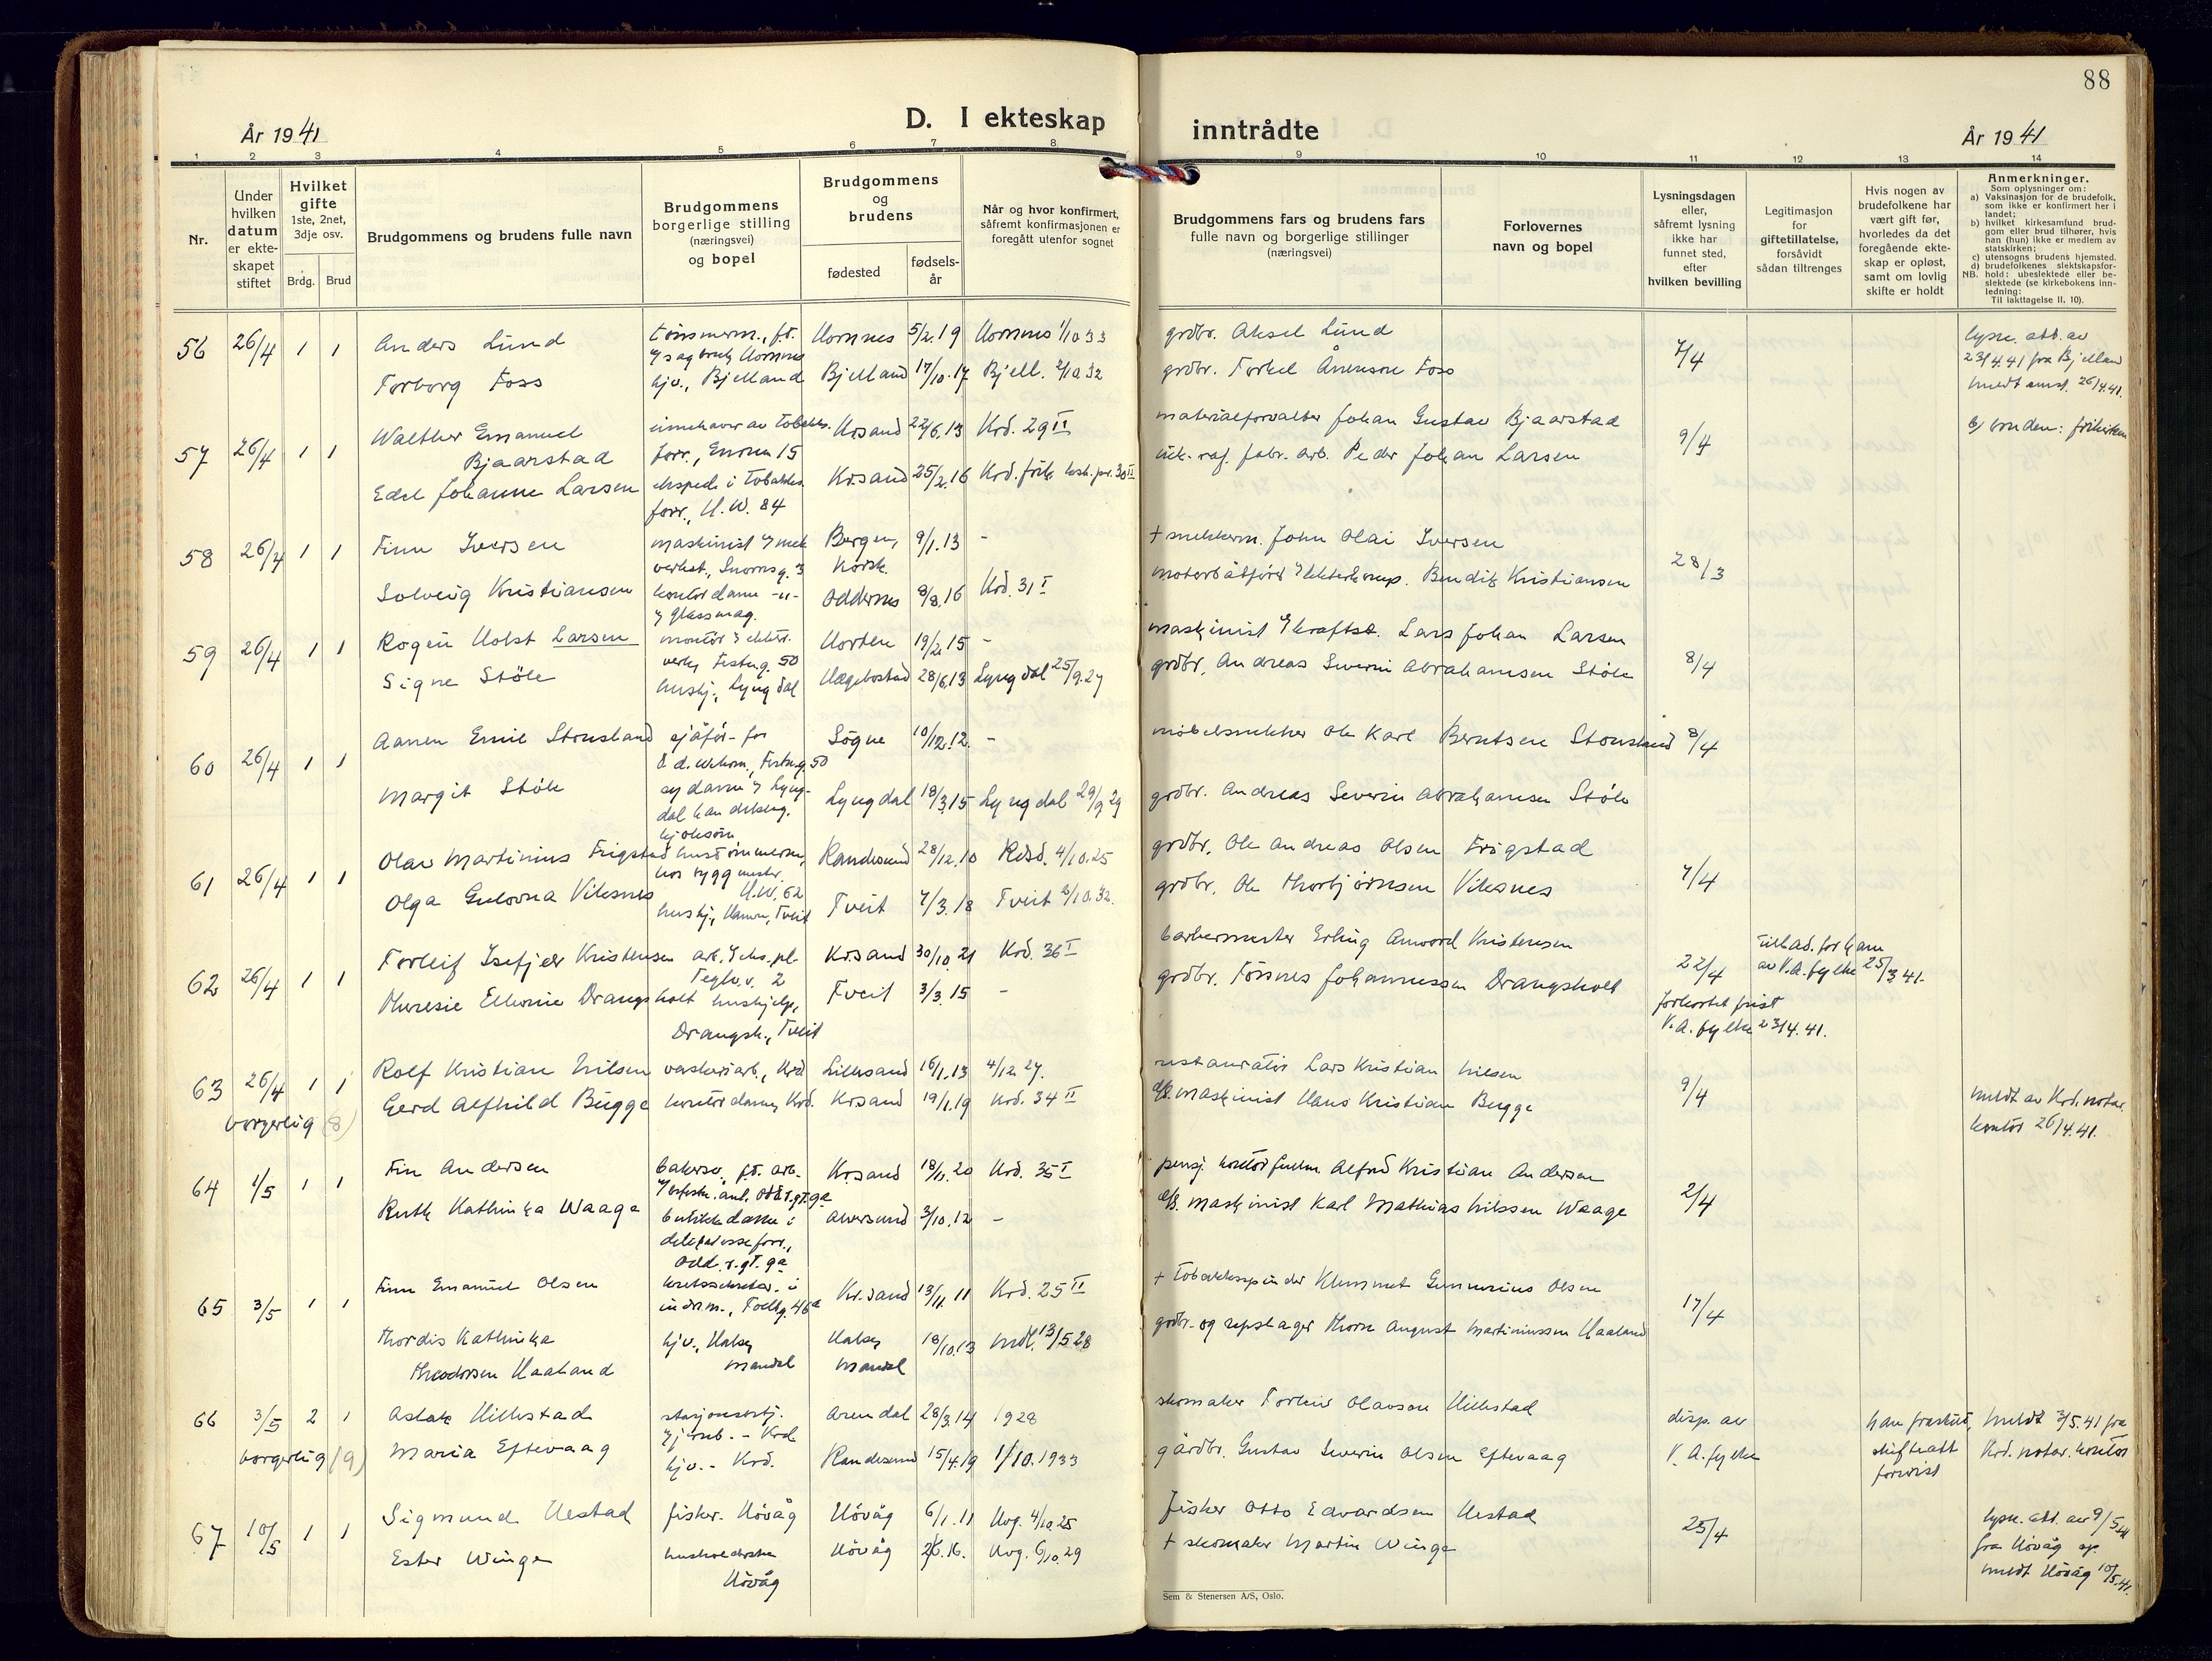 88
År 1941
D. I ekteskap
inntrådte
År 1941
1 2 3 4 5 6 7 8 9 10 11 12 13 14
Nr.
Under hvilken datum er ekte-skapet stiftet
Hvilket gifte
1ste, 2net, 3dje osv.
Brdg. Brud
Brudgommens og brudens fulle navn
Brudgommens borgerlige stilling (næringsvei) og bopel
Brudgommens og brudens
fødested
fødsels-år
Når og hvor konfirmert, såfremt konfirmasjonen er foregått utenfor sognet
Brudgommens fars og brudens fars fulle navn og borgerlige stillinger (næringsvei)
Forlovernes navn og bopel
Lysningsdagen eller, såfremt lysning ikke har funnet sted, efter hvilken bevilling
Legitimasjon for giftetillatelse, forsåvidt sådan tiltrenges
Hvis nogen av brudefolkene har vært gift før, hvorledes da det foregående ekte-skap er opløst, samt om lovlig skifte er holdt
Anmerkninger.
Som oplysninger om:
a) Vaksinasjon for de brudefolk, som ikke er konfirmert her i landet;
b) hvilket kirkesamfund brud-gom eller brud tilhører, hvis han (hun) ikke er medlem av statskirken;
c) utensogns brudens hjemsted.
d) brudefolkenes slektskapsfor-hold: ubeslektede eller be-slektede (se kirkebokens inn-ledning:
NB. Til iakttagelse II, 10).
56 26/4 1 1 Anders Lund Hornnes 5/2.19 Hornnes 1/10 33 grdbr. Aksel Lund 7/4
Torborg Foss hjv., Bjelland Bjelland 17/10.17 Bjell. 2/10.32 grdbr. Torkel Ånensen Foss
23/4.41 fra Bjelland
meldt 26/4.41.
57 26/4 1 1 Walther Emanuel Bjaarstad Krsand 22/6.13 Krd. 29 II materialforvalter Johan Gustav Bjaarstad 9/4 b) bruden: frikirken
Edel Johanne Larsen eksped. i tobakks forr., H.W. 84 Krsand 25/2.16 Krd. 30 II fabr. arb. Peder Johan Larsen
58 26/4 1 1 Finn Iversen maskinist Bergen, 9/1.13 - + John Olai Iversen 28/3
Solveig Kristiansen kontordame -"- glassmag. Oddernes 8/8.16 Krd. 31 I Bendik Kristiansen
59 26/4 1 1 Holst Larsen montör Horten 19/2.15 - maskinist Lars Johan Larsen 8/4
Signe Støle hushj., Lyngdal Hægebostad 28/6.13 Lyngdal 25/9.27 grdbr. Andreas Severin Abrahamsen Støle
60 26/4 1 1 Aanen Emil Stousland sjåfør Søgne 10/12.12. - møbelsnekker Ole Karl Berntsen Stousland 8/4
Margit Støle Lyngdal 18/3.15 Lyngdal 29/9 29 grdbr. Andreas Severin Abrahamsen Støle
61 26/4 1 1 Olav Martinius Frigstad Randesund 28/12.10 Rdsd. 4/10.25 grdbr. Ole Andreas Olsen Frigstad 7/4
Olga Gulovna Viksnes H.W. 62 hushj., Hamre, Tveit Tveit 7/3.18 Tveit 2/10.32. grdbr. Ole Thorbjørnsen Viksnes
62 26/4 1 1 Torleif Isefjær Kristensen Teglv.v. 2 Krsand 30/10.21 Krd. 36 I barbermester Erling Amvord Kristensen 22/4
Theresie Elherine Drangsholt hushjelp, Drangsh., Tveit Tveit 3/3.15 - grdbr. Tønnes Johannessen Drangsholt
forkortet frist V.A. fylke 23/4.41.
tillad. for ham av V.A. fylke 25/3 41.
63 26/4 1 1 Rolf Kristian Nilsen vaskeriarb., Krd Lillesand 16/1.13 4/12 27. restauratör Lars Kristian Nilsen 9/4
borgerlig (8) Gerd Alfhild Bugge kontordame, Krd. Krsand 19/1.19 Krd. 34 II maskinist Hans Kristian Bugge
meldt av Krd. notar. kontor 26/4.41.
64 1/5 1 1 Finn Andersen Krsand 18/11.20 Krd. 35 I pensj. Alfred Kristian Andersen 2/4
Ruth Kathinka Waage butikkdame i delikatesseforr., Odd. r. gt. 9a Aversund 3/10.12 - maskinist Karl Mathias Nilssen Waage
65 3/5 1 1 Finn Emanuel Olsen kretssekretær i indrm., Tollbg. 46a Kr.sand 13/11.11 Krd. 25 II + tobakksspinder Klemmet Gunnerius Olsen 17/4
Thordis Kathinka Theodorsen Haaland hjv., Halse, Mandal Halse, Mandal 18/10.13 Mdl. 13/5 28 grdbr. og repslager August Martiniussen Haaland
66 3/5 2 1 Aslak Hillestad Krd. Arendal 28/3.14 1928 skomaker Torleiv Olavson Hillestad disp. av V. A. fylke
borgerlig (9) Maria Eftevaag hjv. - Krd. Randesund 15/4.19 1/10.1933 gårdbr. Gustav Severin Olsen Eftevaag
han fraskilt, skifteatt forevist
meldt 3/5.41 fra Krd. notar. kontor
67 10/5 1 1 Sigmund Uestad fisker. Høvåg Høvåg 6/1.11 Hvg. 4/10.25 fisker Otto Edvardsen Uestad 25/4
Ester Winge Høvåg Høvåg Hvg. 6/10.29 + skomaker Martin Winge
lysn. att. av 9/5 41 fra Høvåg
meldt Høvåg 10/5.41.
Sem & Stenersen A/S, Oslo.